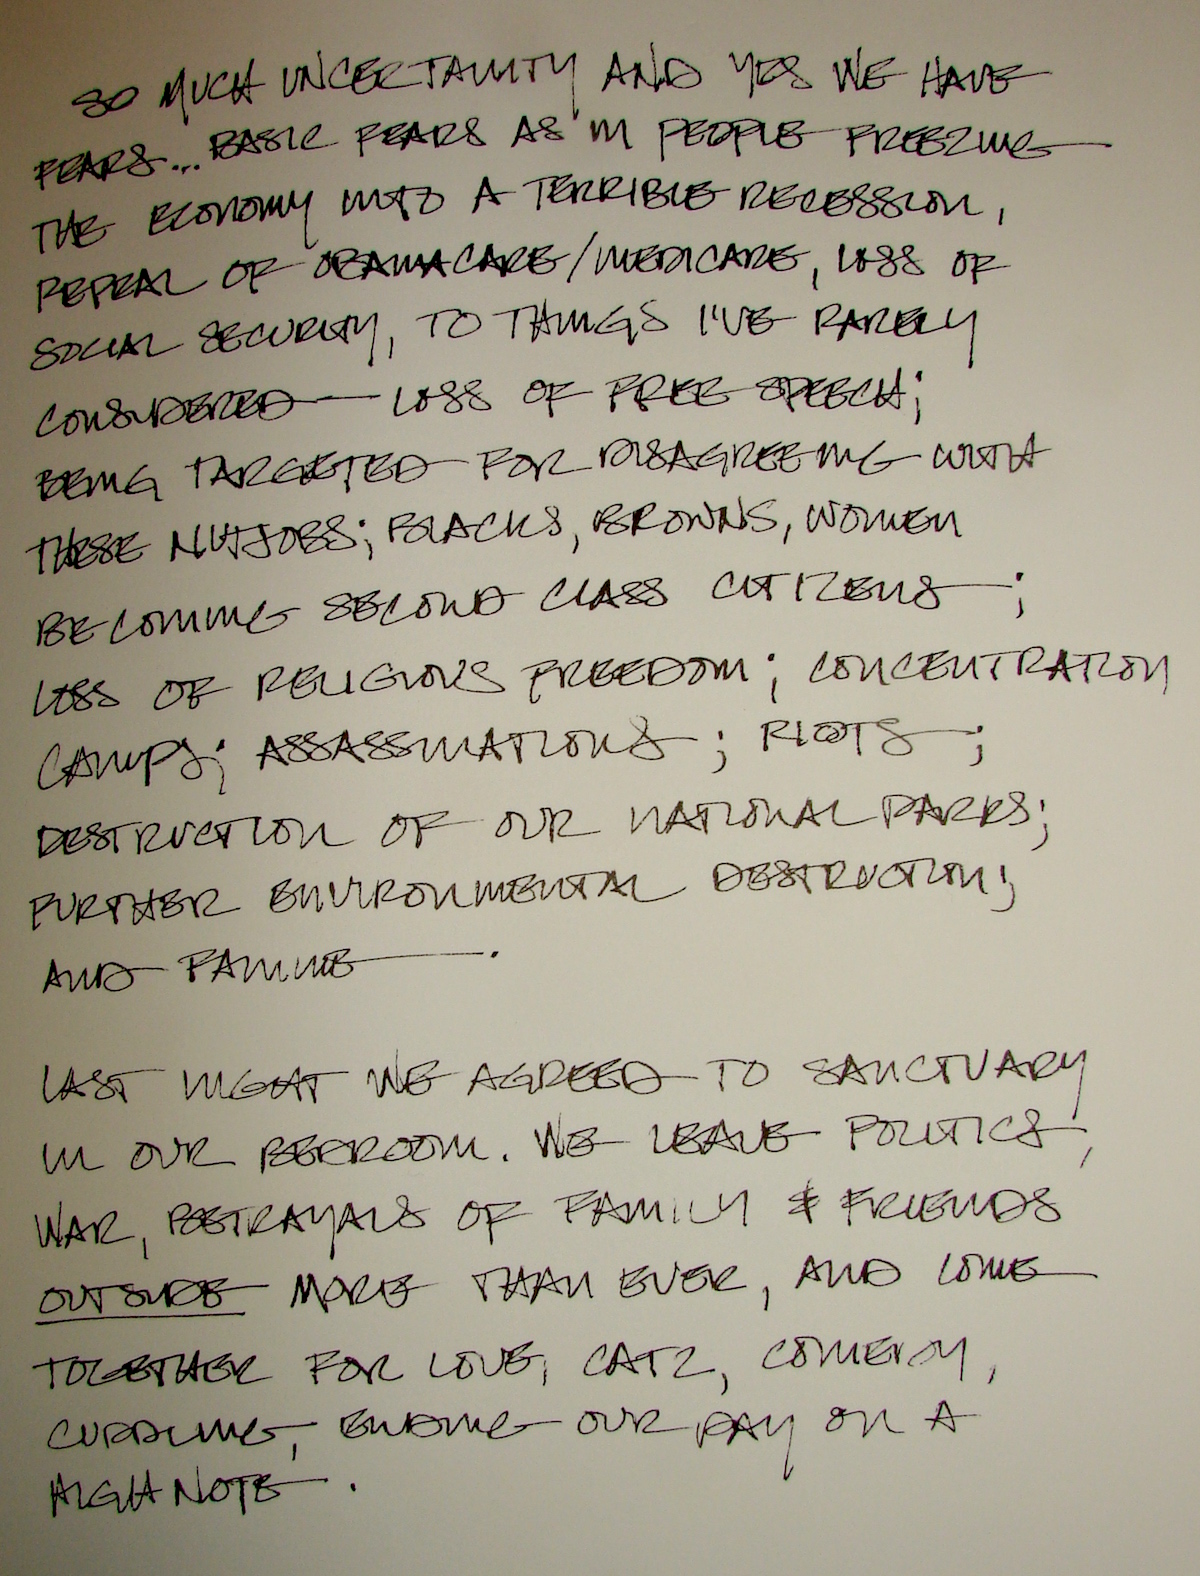 SO MUCH UNCERTAINTY AND YES WE HAVE
FEARS... BASIC FEARS AS IN PEOPLE FREEZING
THE ECONOMY INTO A TERRIBLE RECESSION,
REPEAL OF OBAMACARE/MEDICARE, LOSS OF
SOCIAL SECURITY, TO THINGS I'VE RARELY
CONSIDERED — LOSS OF FREE SPEECH;
BEING TARGETED FOR DISAGREEING WITH
THESE NUTJOBS; BLACKS, BROWNS, WOMEN
BECOMING SECOND CLASS CITIZENS;
LOSS OF RELIGIOUS FREEDOM; CONCENTRATION
CAMPS; ASSASSINATIONS; RIOTS;
DESTRUCTION OF OUR NATIONAL PARKS;
FURTHER ENVIRONMENTAL DESTRUCTION;
AND FAMINE.
LAST NIGHT WE AGREED TO SANCTUARY
IN OUR BEDROOM. WE LEAVE POLITICS,
WAR, BETRAYALS OF FAMILY & FRIENDS
OUTSIDE MORE THAN EVER, AND COME
TOGETHER FOR LOVE, CATZ, COMEDY,
CUDDLING, ENDING OUR DAY ON A
HIGH NOTE.